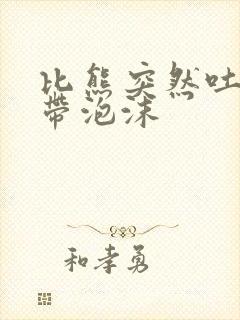 比熊突然吐
带泡沫
和孝勇